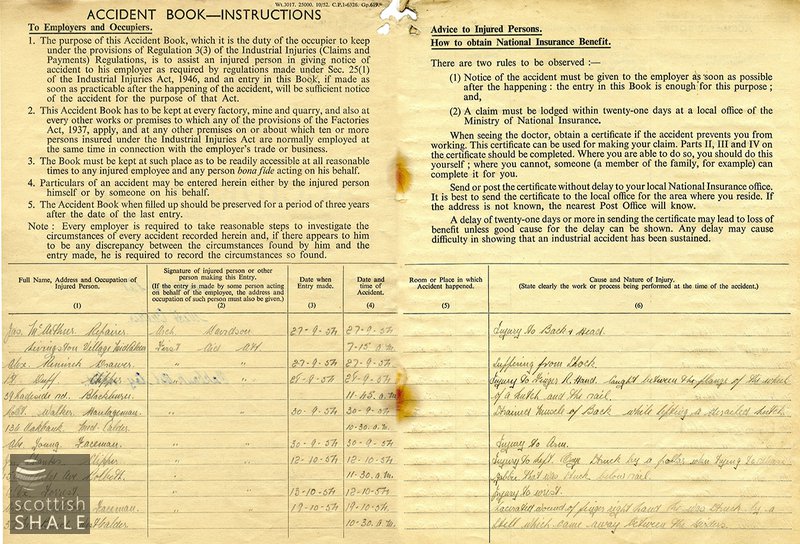 Wt.3017. 25000. 10/52. C.P.1-6526. Gp.
ACCIDENT BOOK—INSTRUCTIONS
To Employers and Occupiers.
1. The purpose of this Accident Book, which it is the duty of the occupier to keep
under the provisions of Regulation 3(3) of the Industrial Injuries (Claims and
Payments) Regulations, is to assist an injured person in giving notice of
accident to his employer as required by regulations made under Sec. 25(1)
of the Industrial Injuries Act, 1946, and an entry in this Book, if made as
soon as practicable after the happening of the accident, will be sufficient
notice of the accident for the purpose of that Act.
2. This Accident Book has to be kept at every factory, mine and quarry, and also at
every other works or premises to which any of the provisions of the Factories
Act, 1937, apply, and at any other premises on or about which ten or more
persons insured under the Industrial Injuries Act are normally employed at
the same time in connection with the employer's trade or business.
3. The Book must be kept at such place as to be readily accessible at all reasonable
times to any injured employee and any person bona fide acting on his behalf.
4. Particulars of an accident may be entered herein either by the injured person
himself or by someone on his behalf.
5. The Accident Book when filled up should be preserved for a period of three years
after the date of the last entry.
Note : Every employer is required to take reasonable steps to investigate the
circumstances of every accident recorded herein and, if there appears to him
to be any discrepancy between the circumstances found by him and the
entry made, he is required to record the circumstances so found.
Advice to Injured Persons.
How to obtain National Insurance Benefit.
There are two rules to be observed :—
(1) Notice of the accident must be given to the employer as soon as possible
after the happening : the entry in this Book is enough for this purpose ;
and,
(2) A claim must be lodged within twenty-one days at a local office of the
Ministry of National Insurance.
When seeing the doctor, obtain a certificate if the accident prevents you from
working. This certificate can be used for making your claim. Parts II, III and IV on
the certificate should be completed. Where you are able to do so, you should do this
yourself ; where you cannot, someone (a member of the family, for example) can
complete it for you.
Send or post the certificate without delay to your local National Insurance office.
It is best to send the certificate to the local office for the area where you reside. If
the address is not known, the nearest Post Office will know.
A delay of twenty-one days or more in sending the certificate may lead to loss of
benefit unless good cause for the delay can be shown. Any delay may cause
difficulty in showing that an industrial accident has been sustained.
Full Name, Address and Occupation of
Injured Person.
(1)
Signature of injured person or other
person making this Entry.
(If the entry is made by some person acting
on behalf of the employee, the address and
occupation of such person must also be given.)
(2)
Date when
Entry made.
(3)
Date and
time of
Accident.
(4)
Room or Place in which
Accident happened.
(5)
Cause and Nature of Injury.
(State clearly the work or process being performed at the time of the accident.)
(6)
Jas. McArthur Repairer Davidson 27-9-54 27-9-54 Injury to Back & Head.
Livingston Village First Aid 7-15 a.m.
Alex. Drawer " " 27-9-54 27-9-54 Suffering from Shock.
Duff Clipper 28-9-54 28-9-54 Injury to Finger R. Hand. Caught between the flange of the wheel
Blackburn. 11-45 a.m. of a hutch and the rail.
Walker Haulageman. " " 30-9-54 30-9-54 Strained muscle of Back while lifting a derailed hutch.
136 Oakbank Mid Calder 10-30 a.m.
Young Faceman. " " 30-9-54 30-9-54 Injury to Arm.
Clipper " " 12-10-54 12-10-54 Injury to left Struck by a when trying to
11-30 a.m. that was stuck below rail.
Forrest " " 13-10-54 13-10-54 Injury to wrist.
Faceman. " " 19-10-54 19-10-54 Lacerated wound of finger right hand He was struck by a
10-30 a.m. which came away between the girders.
scottish
SHALE